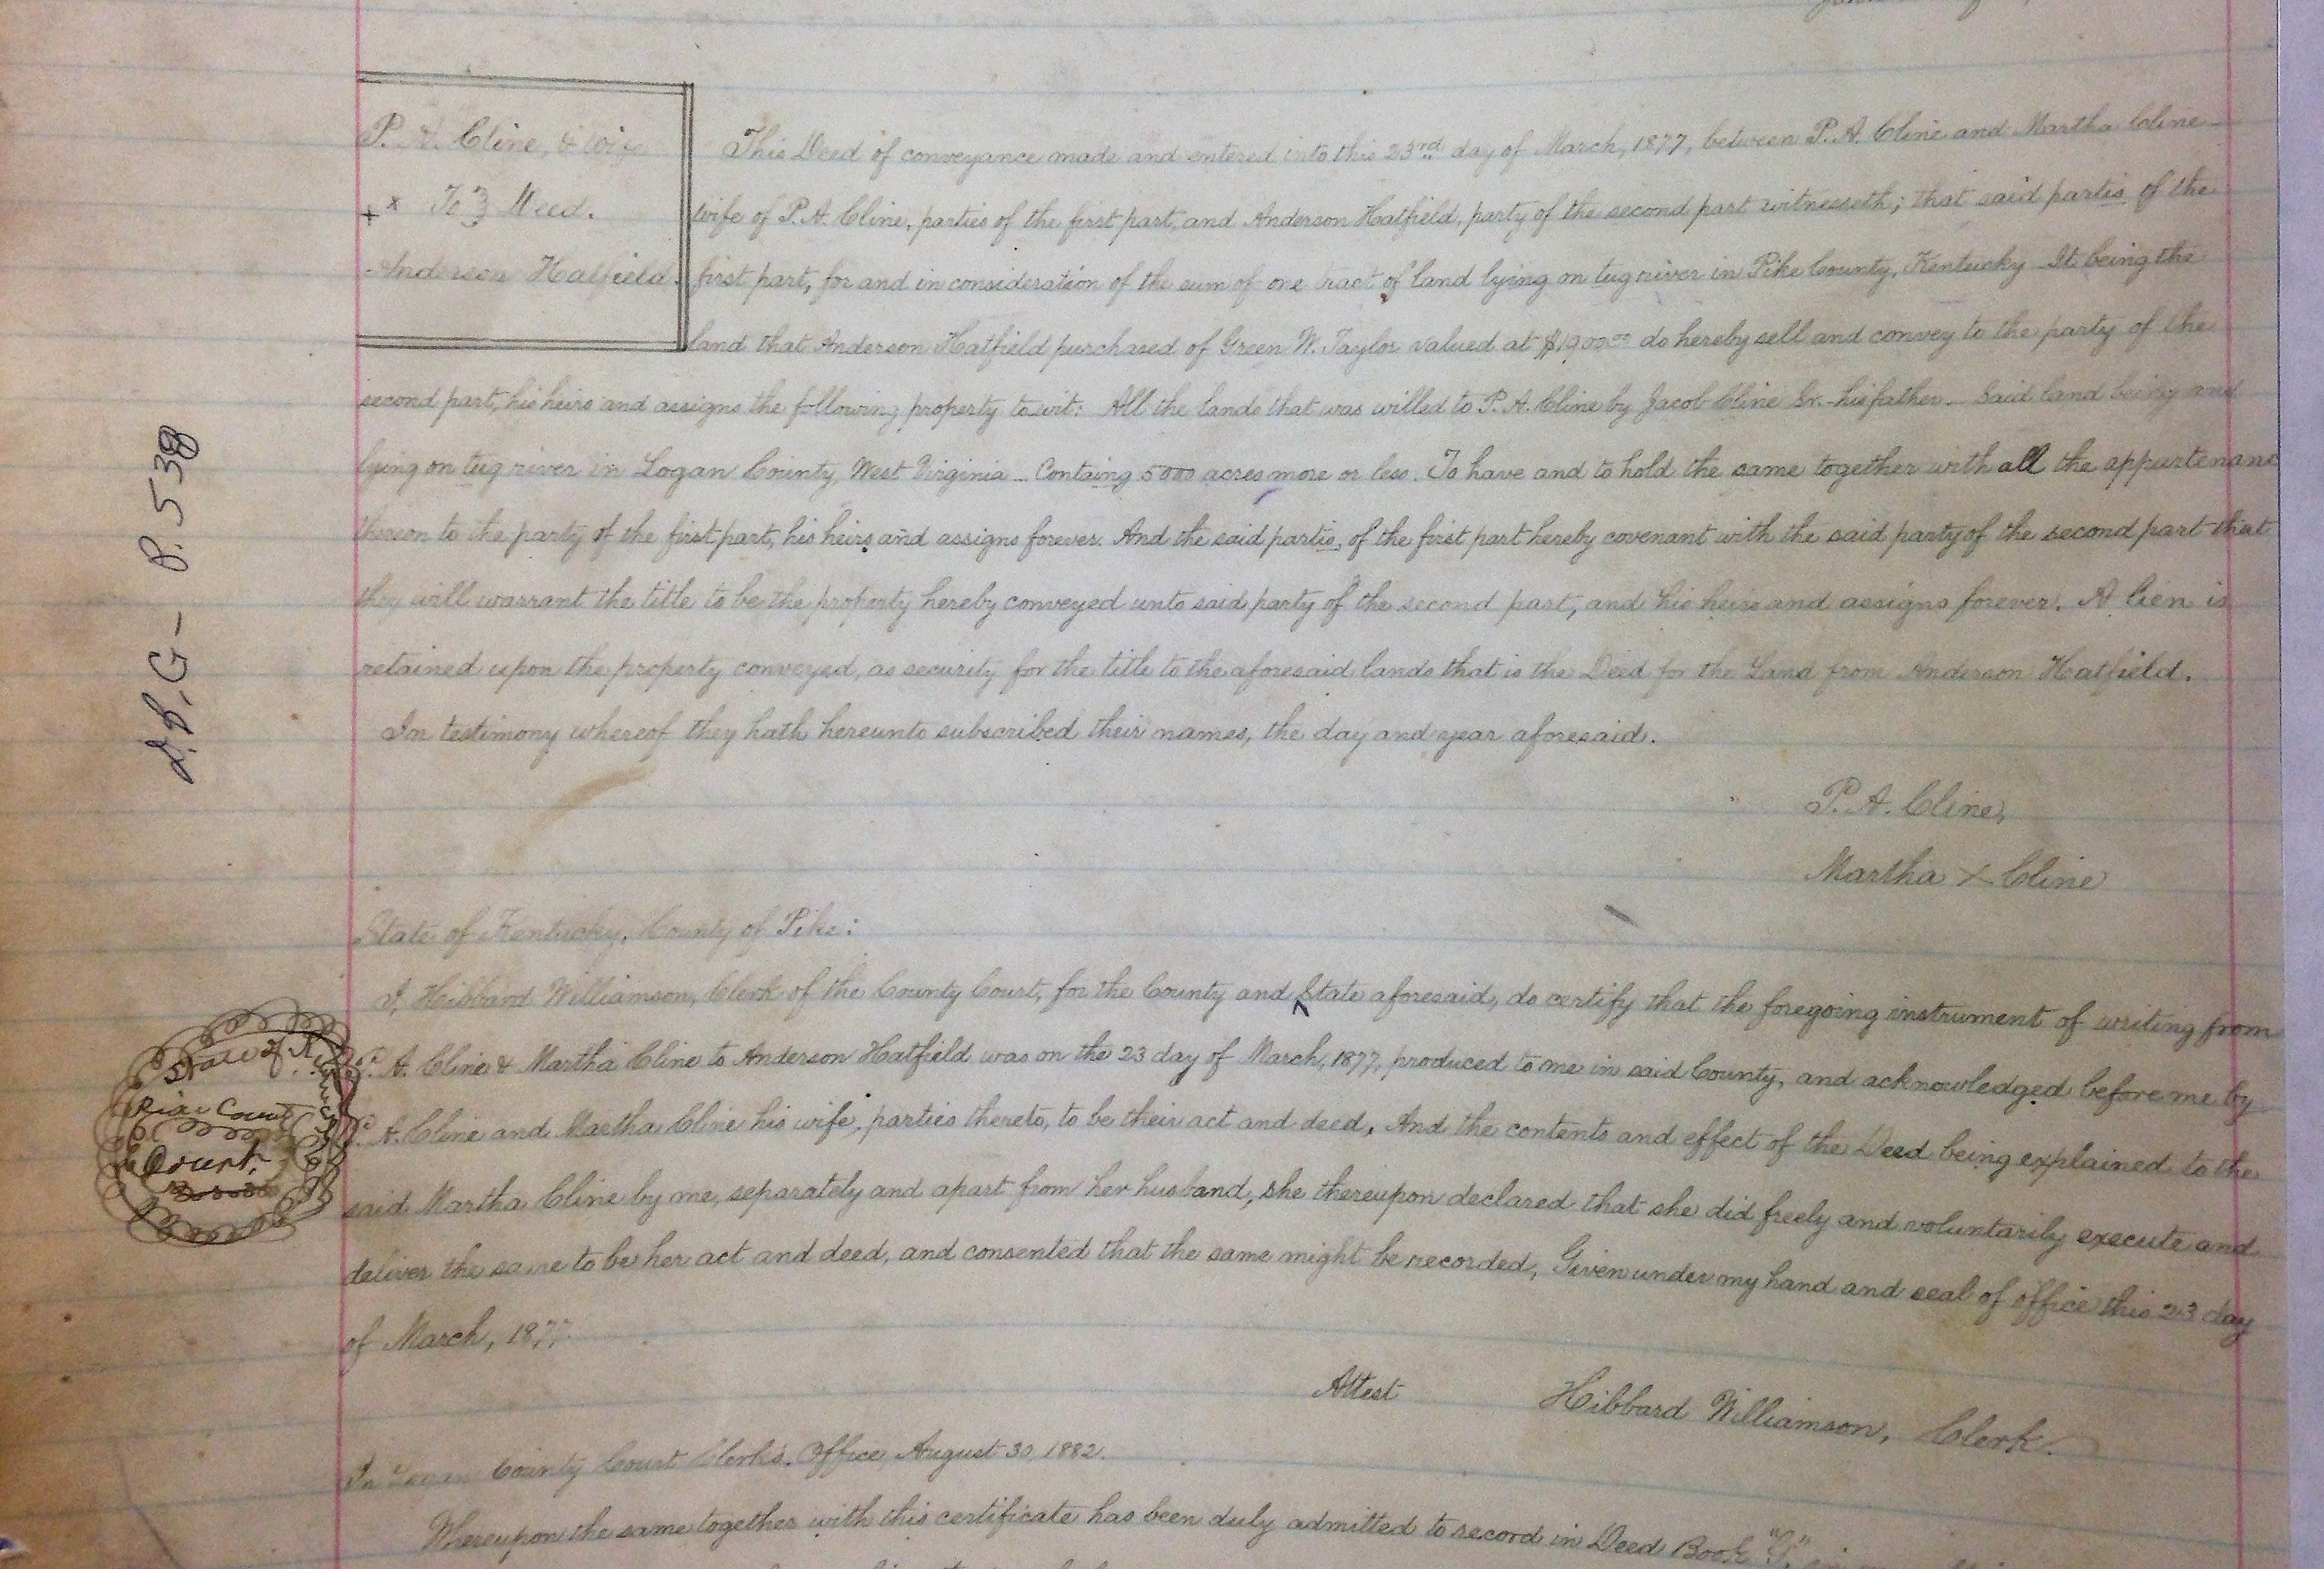 P. A. Cline, & Wife
+ x To } Deed.
Anderson Hatfield.
This Deed of conveyance made and entered into this 23rd day of March, 1877, between P. A. Cline and Martha Cline
wife of P. A. Cline, parties of the first part, and Anderson Hatfield, party of the second part witnesseth; that said partis of the
first part, for and in consideration of the sum of one tract of land lying on tug river in Pike County, Kentucky It being the
land that Anderson Hatfield purchased of Green W. Taylor valued at $1900.00 do hereby sell and convey to the party of the
second part, his heirs and assigns the following property to wit: All the lands that was willed to P. A. Cline by Jacob Cline Sr. his father. Said land being and
lying on tug river in Logan County, West Virginia Containg 5000 acres more or less. To have and to hold the same together with all the appurtenanc
thereon to the party of the first part, his heirs and assigns forever. And the said partis, of the first part hereby covenant with the said party of the second part that
they will warrant the title to be the property hereby conveyed unto said party of the second part, and his heirs and assigns forever. A lien is
retained upon the property conveyed, as security for the title to the aforesaid lands that is the Deed for the Land from Anderson Hatfield.
In testimony whereof they hath hereunto subscribed their names, the day and year aforesaid.
P. A. Cline,
Martha X Cline
D. B, G - P. 538
State of Kentucky, County of Pike:
I, Hibbard Williamson, Clerk of the County Court, for the County and State aforesaid, do certify that the foregoing instrument of writing from
P. A. Cline & Martha Cline to Anderson Hatfield was on the 23 day of March, 1877, produced to me in said County, and acknowledged before me by
P. A. Cline and Martha Cline his wife, parties thereto, to be their act and deed, And the contents and effect of the Deed being explained to the
said Martha Cline by me, separately and apart from her husband, she thereupon declared that she did freely and voluntarily execute and
deliver the same to be her act and deed, and consented that the same might be recorded, Given under my hand and seal of office this 23 day
of March, 1877.
State of
Court.
Attest Hibbard Williamson, Clerk.
In Logan County Court Clerk's. Office, August 30, 1882.
Whereupon the same together with this certificate has been duly admitted to record in Deed Book "G,"